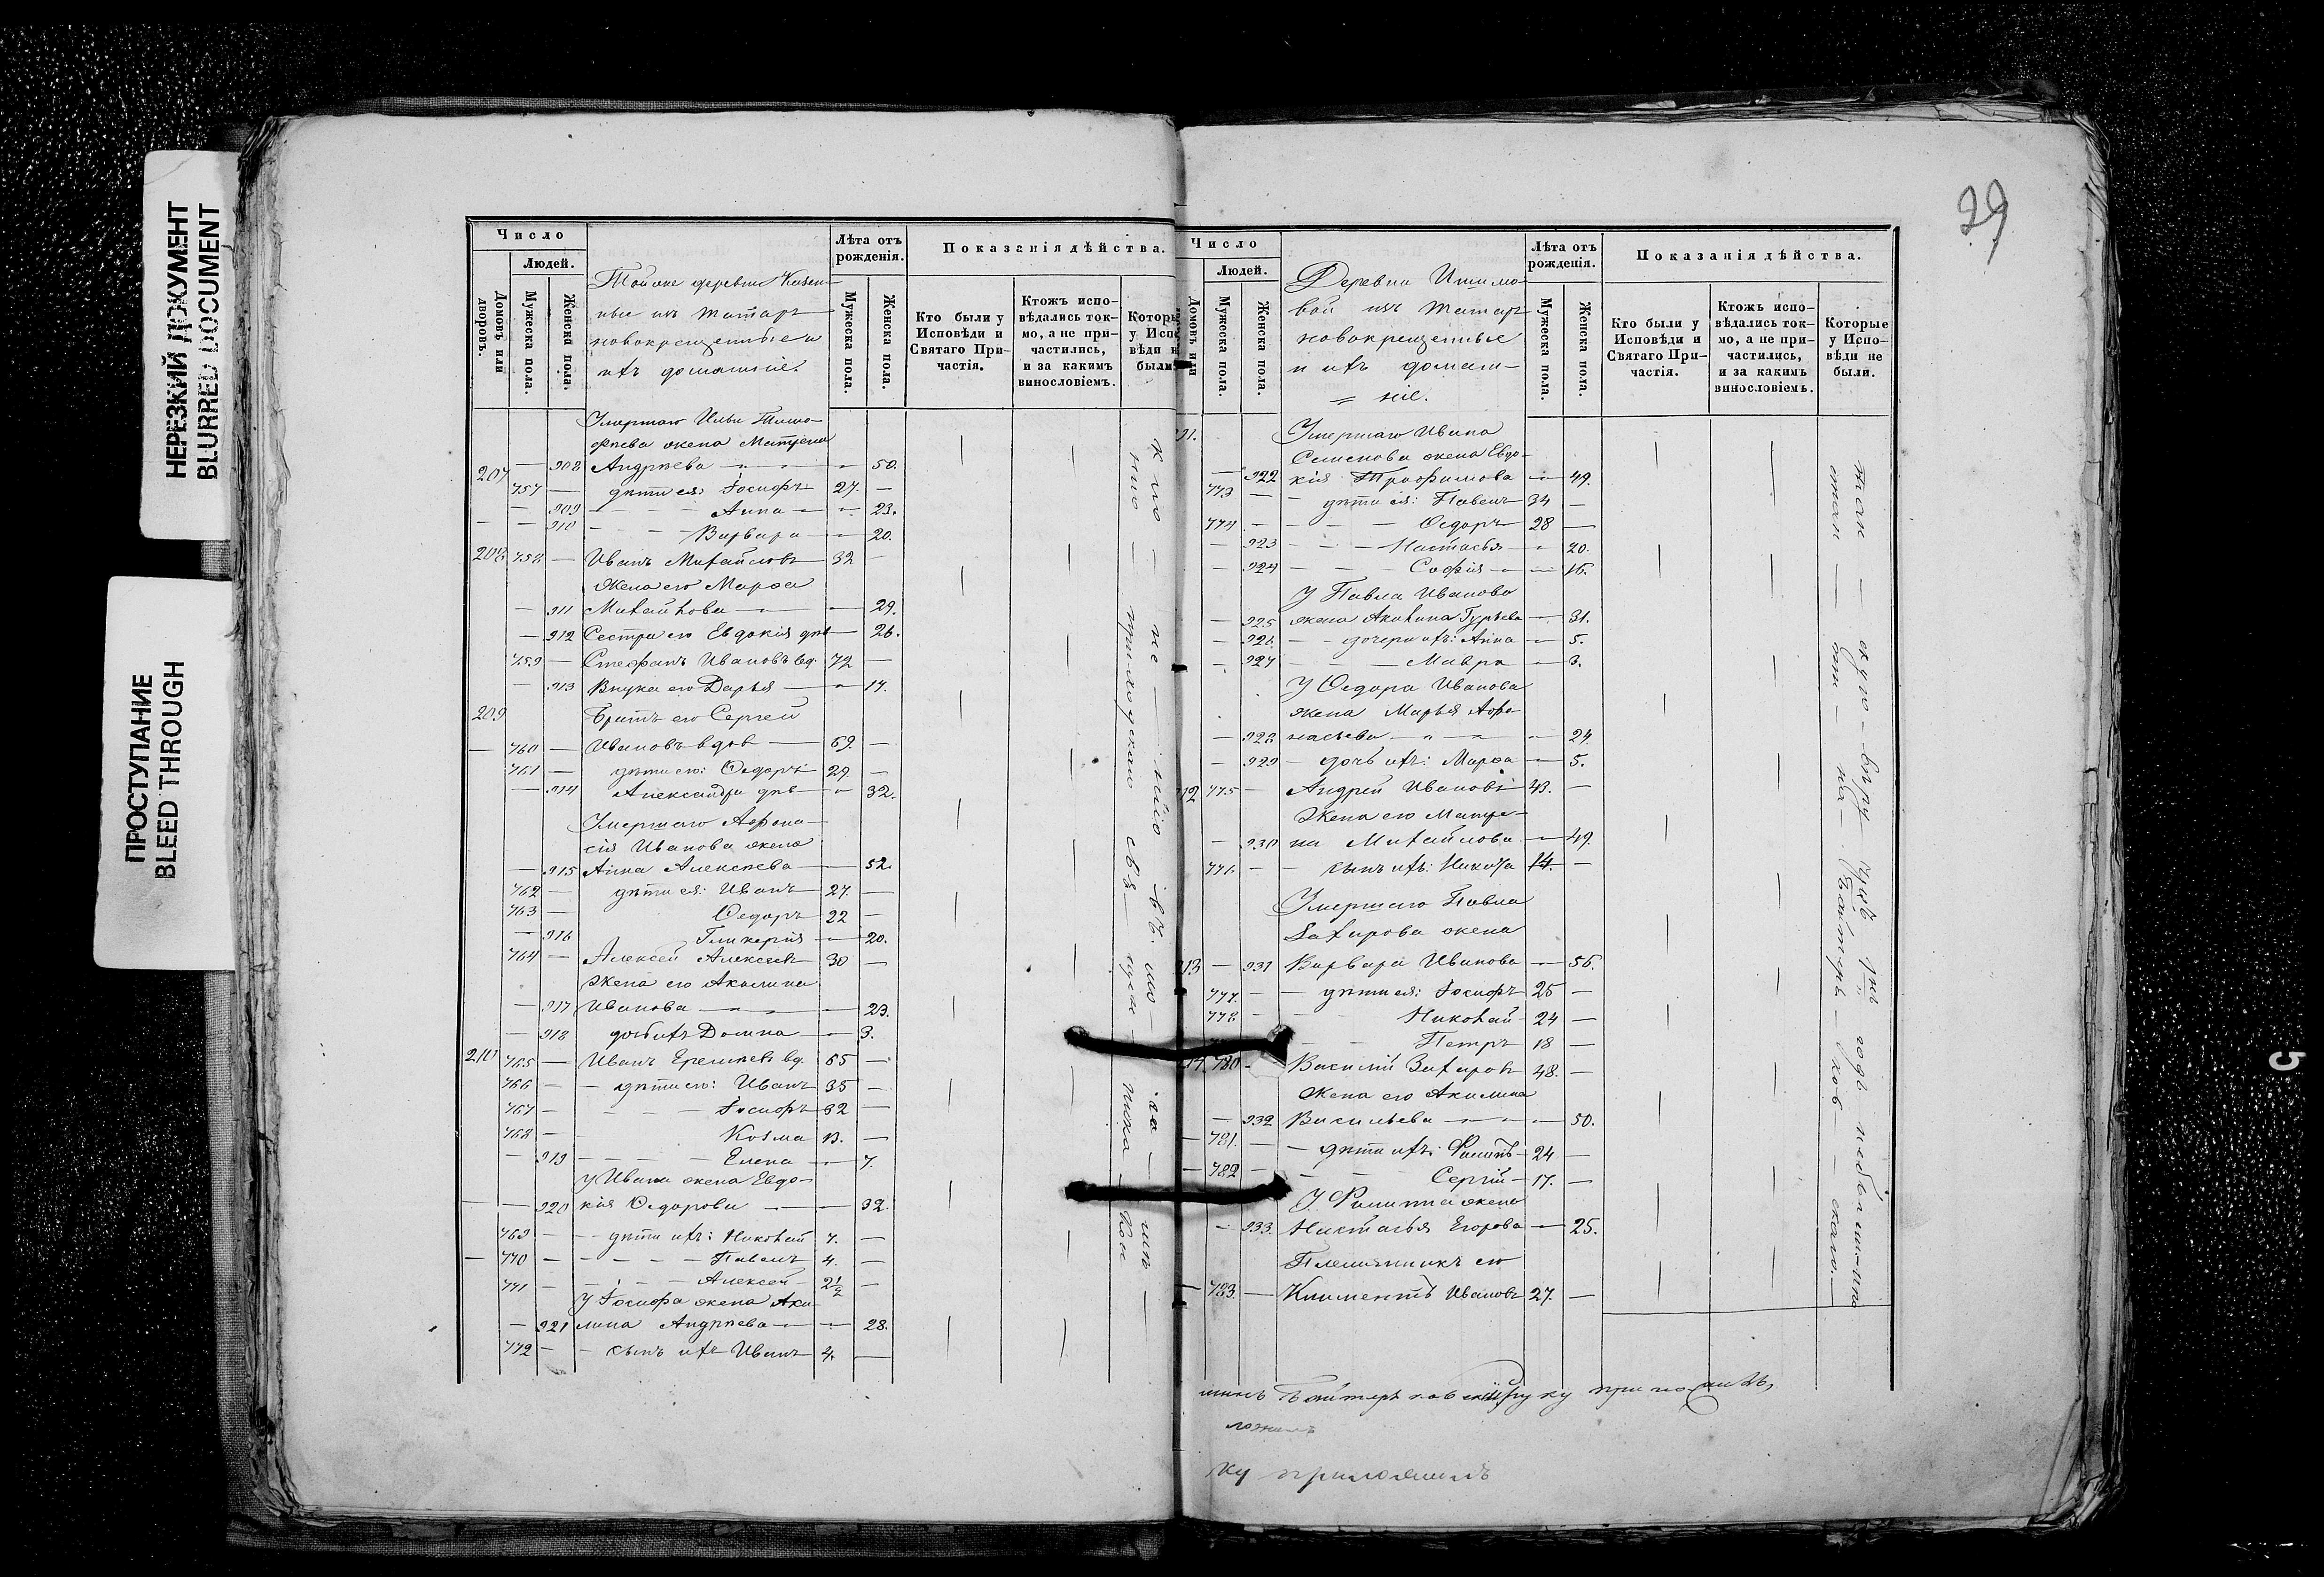 НЕРЕЗКИЙ ДОКУМЕНТ
BLURRED DOCUMENT
ПРОСТУПАНИЕ
BLEED THROUGH
Число
Людей.
Домовъ или дворовъ.
Мужеска пола.
Женска пола.
Той же деревни
изъ татаръ
новокрещенные и
ихъ домашніе.
Лѣта отъ рожденія.
Мужеска пола.
Женска пола.
Показанія дѣйства.
Кто были у Исповѣди и Святаго Причастія.
Ктожъ исповѣдались токмо, а не причастились, и за какимъ винословіемъ.
Умершаго Ильи Тимо-
фѣева жена Матрена
207 — 908 Андрѣева — 50.
757 — дѣти ея: Іосифъ 27. —
— 909 Анна — 23.
— 910 Варвара — 20.
208 758 — Иванъ Михайловъ 32 —
Жена его Марѳа
— 911 Михайлова — 29.
— 912 Сестра его Евдокія двѣ — 26.
759 — Стефанъ Ивановъ вд. 72 —
— 913 Внука его Дарья — 14.
209 Братъ его Сергей
— 760 — Ивановъ вдов — 69. —
761 — дѣти его: Ѳедоръ 29 —
— 914 Александра двѣ — 32.
Умершаго Аѳана-
сія Иванова жена
— 915 Анна Алексѣева — 52.
762 — дѣти ея: Иванъ 27. —
763 — Ѳедоръ 22 —
— 916 Гликерія — 20.
764 — Алексей Алексеевъ 30 —
Жена его Акилина
— 917 Иванова — 23.
— 918 дочь ихъ Домна — 3.
210 765 — Иванъ Еремѣевъ вд. 65 —
766 — дѣти его: Иванъ 35 —
767 — Іосифъ 32 —
768 — Козма 13. —
— 919 Елена — 7.
У Ивана жена Евдо-
— 920 кія Ѳедорова — 32.
769 — дѣти ихъ: Николай 7. —
770 — Павелъ 4. —
771 — Алексей 2½ —
У Іосифа жена Аки-
— 921 лина Андрѣева — 28.
772 — сынъ ихъ Иванъ 4. —
29
Число
Людей.
Мужеска пола.
Женска пола.
Деревни Ишимо-
вой изъ татаръ
новокрещенные
и ихъ домаш-
ніе.
Лѣта отъ рожденія.
Мужеска пола.
Женска пола.
Показанія дѣйства.
Кто были у Исповѣди и Святаго Причастія.
Ктожъ исповѣдались токмо, а не причастились, и за какимъ винословіемъ.
Которые у Исповѣди не были.
Умершаго Ивана
Семенова жена Евдо-
— 922 кія Трофимова — 49.
773 — дѣти ея: Павелъ 34 —
774 — Ѳедоръ 28 —
— 923 Настасья — 20.
— 924 Софія — 16.
У Павла Иванова
— 925 жена Акилина Гурьева — 31.
— 926 дочери ихъ: Анна — 5.
— 927 Мавра — 3.
У Ѳедора Иванова
жена Марья Аѳо-
— 928 насьева — 24.
— 929 дочь ихъ: Марѳа — 5.
775 — Андрей Ивановъ 43. —
Жена его Матре-
— 930 на Михайлова — 49.
776 — сынъ ихъ: Никита 14. —
Умершаго Павла
Захарова жена
— 931 Варвара Иванова — 56.
777 — дѣти ея: Іосифъ 25 —
778 — Николай 24 —
Петръ 18 —
780 — Василій Захаровъ 48. —
Жена его Акилина
— 932 Васильева — 50.
781 — дѣти ихъ: Филипъ 24 —
782 — Сергій 17. —
У Филиппа жена
— 933 Настасья Егорова — 25.
Племянникъ его
783 — Климентъ Ивановъ 27. —
ку приложилъ
5